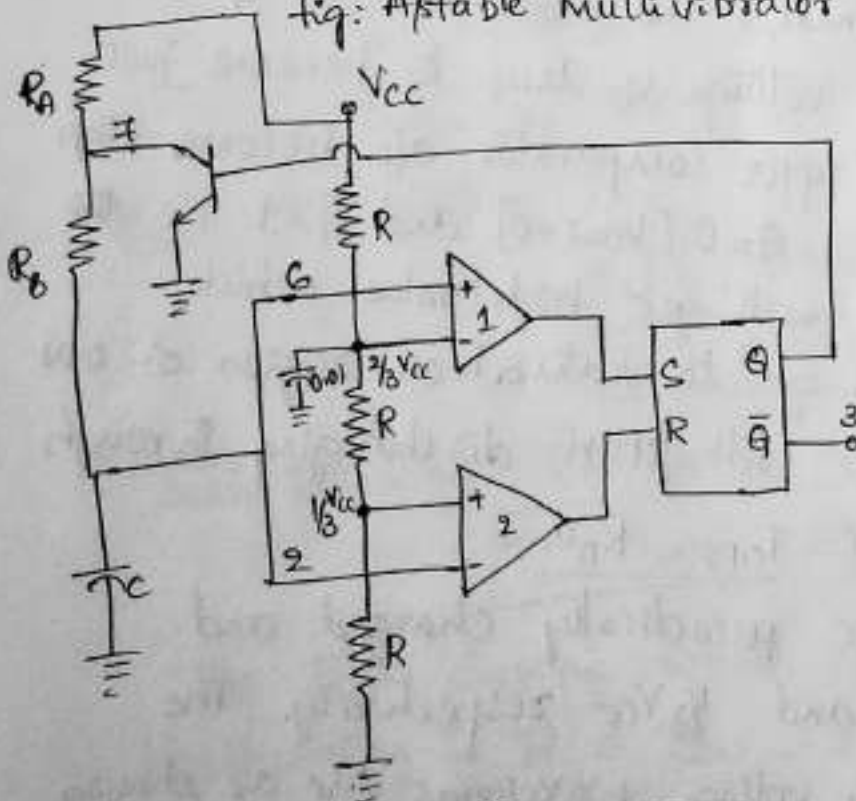 fig: Astable Multivibrator
R_A
V_CC
7
R
R_B
6
+
1
-
0.01
2/3 V_CC
S
Q
R
R
Q̅
3
1/3 V_CC
+
2
-
2
C
R